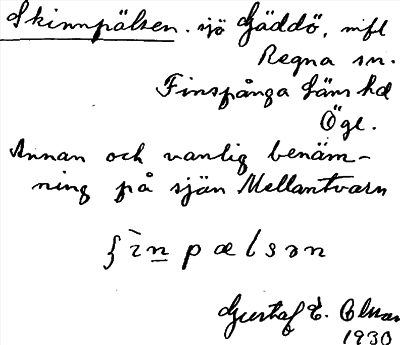 Skinnpälsen. sjö Gäddö, mfl
Regna sn.
Finspånga läns hd
Ögl.
Annan och vanlig benäm-
ning på sjön Mellantvarn
ʃìn̲pælsən
Gustaf E.
1930